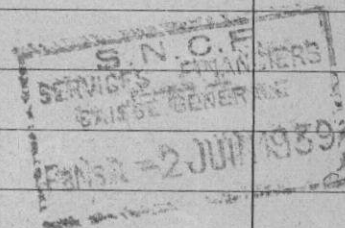 S.N.C.F
SERVICES FINANCIERS
CAISSE GENERALE
-2 JUIN 1939